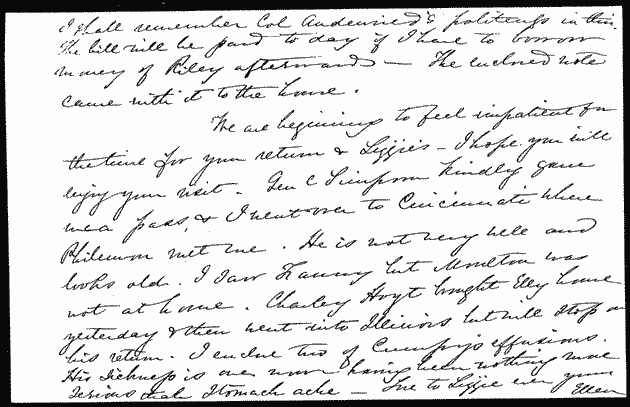 I shall remember Col Audenried's politeness in this.
The bill will be paid to day if I have to borrow
money of Riley afterwards — The enclosed note
came with it to the house.
We are beginning to feel impatient for
the time for your return & Lizzie's — I hope you will
enjoy your visit - Gen C Simpson kindly gave
me a pass, & I went over to Cincinnati where
Philemon met me. He is not very well and
looks old. I saw Fanny but Moulton was
not at home. Charley Hoyt brought Elly home
yesterday & then went into Illinois but will stop on
his return. I enclose two of Cumpy's effusions.
His sickness is over now having been nothing more
serious than stomach ache — Love to Lizzie ever your
Ellen